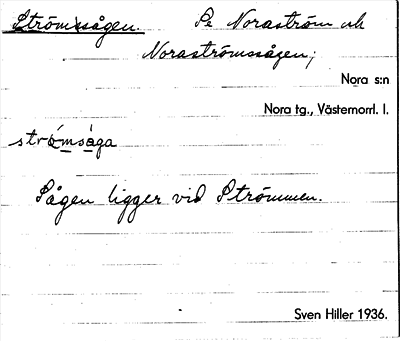 Strömssågen. Se Noraström och
Noraströmssågen;
Nora s:n
Nora tg., Västernorrl. l.
strömsaga
Sågen ligger vid Strömmen.
Sven Hiller 1936.